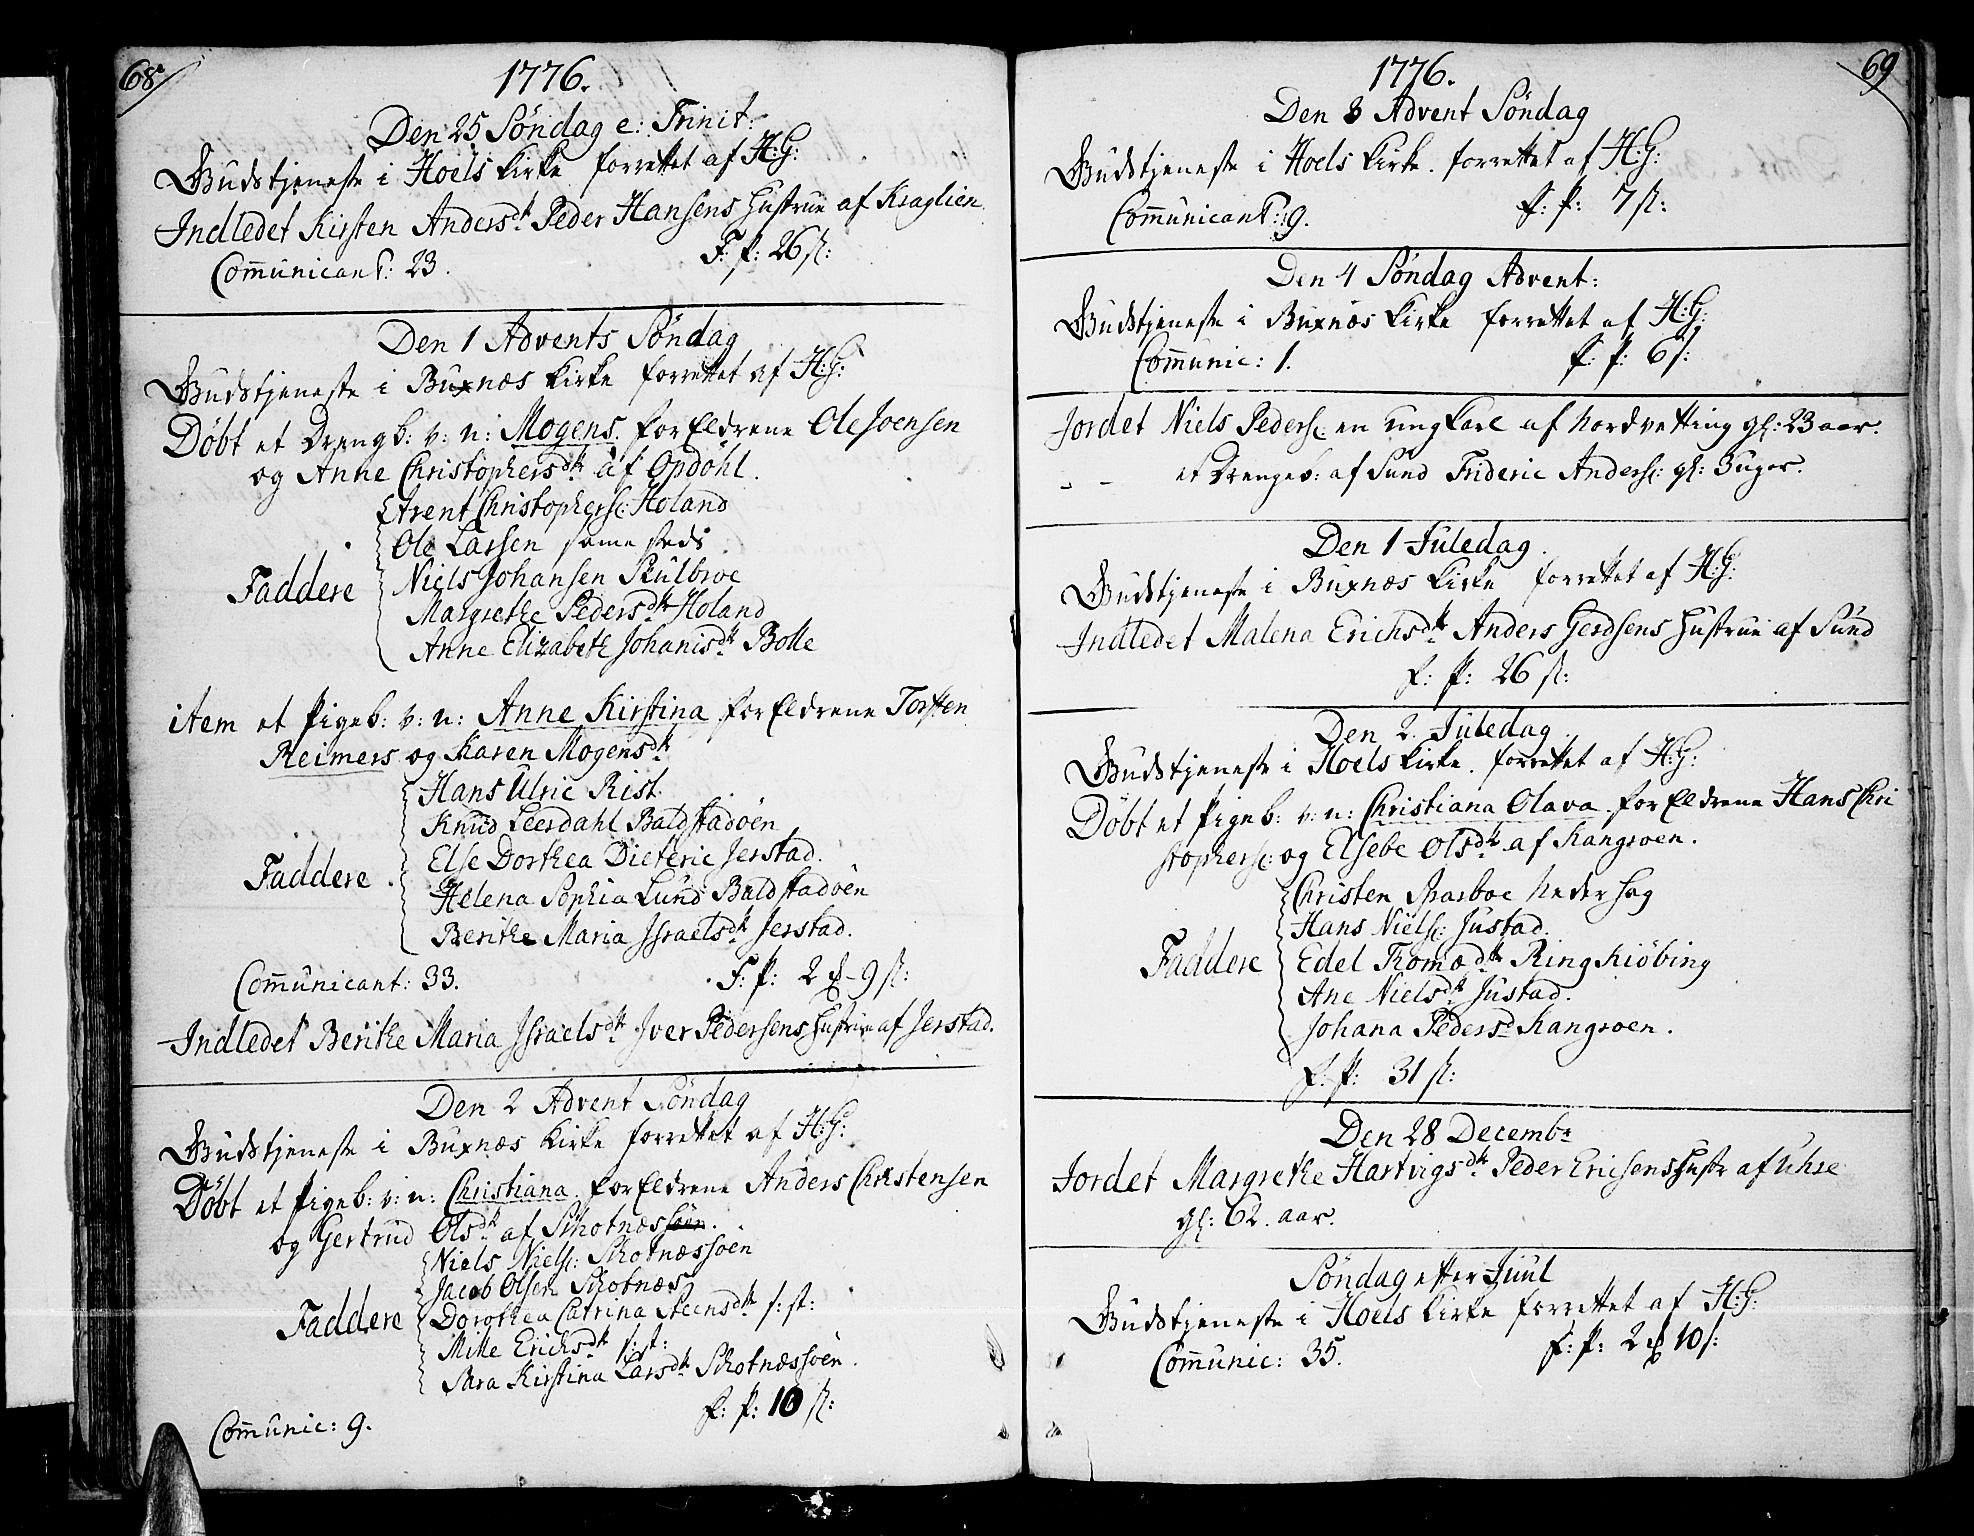 68
1776.
Den 25 Söndag e: Trinit:
Gudstjeneste i Hoels Kirke forrettet af H:G:
Indledet Kirsten Andersdt Peder Hansens Hustrue af Kraglien
Com̄unicant: 23.
F: p: 26 ß:
Den 1 Advents Söndag
Gudstjeneste i Buxnæs Kirke forrettet af H:G:
Döbt et Drengb: v: n: Mogens. forEldrene Ole Joensen
og Anne Christophersdt af Opdöhl.
Arent Christophers: Holand
Ole Larsen samesteds
Faddere Niels Johansen Skulbroe
Margrethe Pedersdt Holand
Anne Elizabeth Johanisdt Bolle
item et Pigeb: v: n: Anne Kirstina forEldrene Torsten
Reimers og Karen Mogensdt
Hans Ulric Rist.
Knud Leerdahl Baldstadöen
Faddere Else Dorthea Dieteric Jerstad.
Helena Sophia Lund Baldstadöen
Berithe Maria Israelsdt Jerstad.
Com̄unicant: 33.
F: p: 2 - 9 ß:
Indledet Berithe Maria Israelsdt Iver Pedersens Hustrue af Jerstad.
Den 2 Advent Söndag
Gudstjeneste i Buxnæs Kirke forrettet af H:G:
Döbt et Pigeb: v: n: Christiana forEldrene Anders Christensen
og Gertrud Olsdt af Schotnæssöen.
Niels Niels: Schotnæssöen
Jacob Olsen Schotnæs
Faddere Dorothea Catrina Steensdt s: st:
Mille Erichsdt s: st:
Sara Kirstina Larsdt Schotnæssöen.
f: p: 10 ß:
Com̄unic: 9.
69
1776.
Den 3 Advent Söndag
Gudstjeneste i Hoels Kirke. forrettet af H:G:
Com̄unicant: 9.
f: p: 7 ß:
Den 4 Söndag Advent:
Gudstjeneste i Buxnæs Kirke forrettet af H:G:
Com̄unic: 1.
f: p: 6 ß:
Jordet Niels Peders: en ungkarl af Nordvetting gl: 23 aar.
- - et Drengeb: af Sund Frideric Anders: gl: 3 uger.
Den 1 Juledag.
Gudstjeneste i Buxnæs Kirke forrettet af H:G:
Indledet Malena Erichsdt Anders Gerdsens Hustrue af Sund
f: p: 26 ß:
Den 2. Juledag.
Gudstjeneste i Hoels Kirke. forrettet af H:G:
Döbt et Pigeb: v: n: Christiana Olava forEldrene Hans Chri
stophers: og Elsebe Olsdt af Kangroen.
Christen Sparboe Nederhag
Hans Niels: Justad.
Faddere Edel Thomædt Ringkiöbing
Ane Nielsdt Justad.
Johana Pedersd Kangroen.
f: p: 31 ß:
Den 28 Decembr
Jordet Margrethe Hartvigsdt Peder Ericsens Hustr af Uhre
gl: 62. aar.
Söndag etter Juul
Gudstjeneste i Hoels Kirke forrettet af H:G:
Com̄unic: 35.
f: p: 2 10 ß: